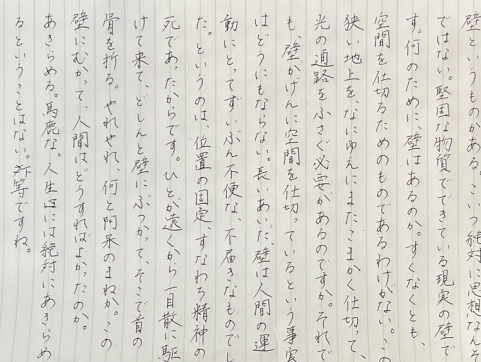 壁というものがある。こいつ絶対に思想なんぞ
ではない。堅固な物質でできている現実の壁で
す。何のために、壁はあるのか。すくなくとも、
空間を仕切るためのものであるわけがない。この
狭い地上を、なにゆえにまたこまかく仕切って、
光の通路を小さぐ必要があるのですか。それで
も、壁がげんに空間を仕切っているという事実
はどうにもならない。長いあいだ、壁は人間の運
動にとってずいぶん不便な、不届きなものでし
た。というのは、位置の固定、すなわち精神の
死であったからです。ひとが遠くから一目散に駆
けて来て、どしんと壁にぶつかって、そこで首の
骨を折る。やれやれ、何と阿呆のまねか。この
壁にむかって、人間はどうすればよかったのか。
あきらめる。馬鹿な。人生には絶対にあきらめ
るということはない。等ですね。